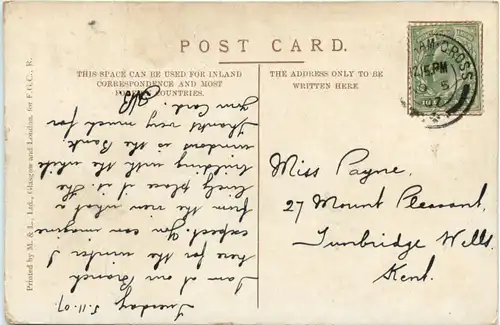 POST CARD.
THIS SPACE CAN BE USED FOR INLAND
CORRESPONDENCE AND MOST
FOREIGN COUNTRIES.
THE ADDRESS ONLY TO BE
WRITTEN HERE.
Printed by M. & L., Ltd., Glasgow and London, for F.G.C., R.
Tuesday 5.11.07.
I am at our Branch
here for the winter I
expect. You can imagine
from the view what a
lively place it is. The
building with the white
windows is the Bank.
Thanks very much for
your Card.
Miss Payne,
27 Mount Pleasant,
Tunbridge Wells.
Kent.
AM CROSS
12.15 PM
5
07